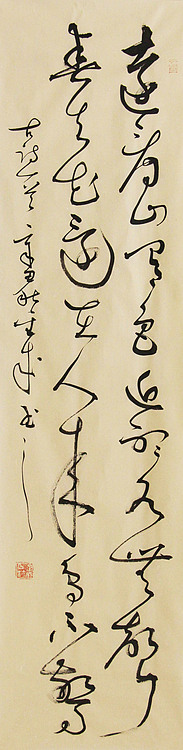 遠看山有色近聽水無聲
春去花還在人來鳥不驚
古詩一首